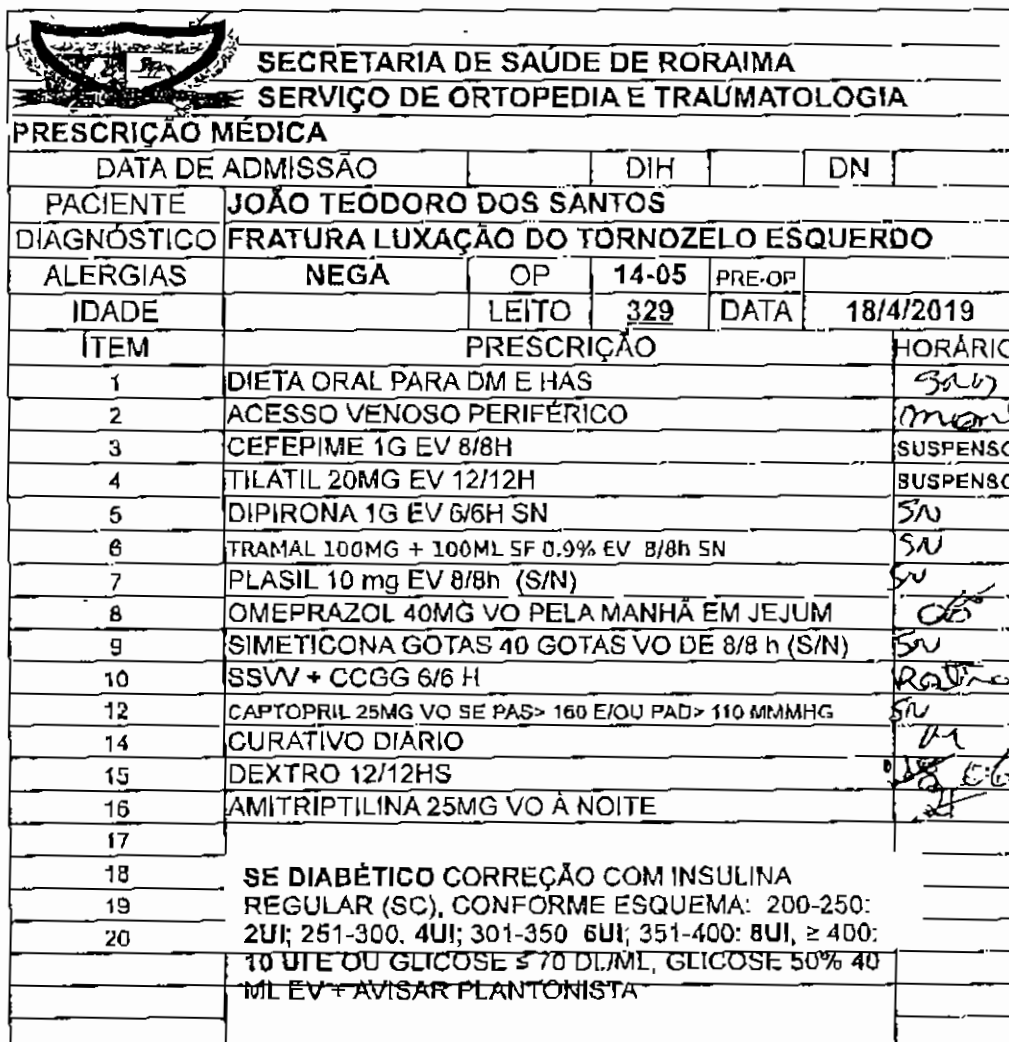 SECRETARIA DE SAÚDE DE RORAIMA
SERVIÇO DE ORTOPEDIA E TRAUMATOLOGIA
PRESCRIÇÃO MÉDICA
DATA DE ADMISSÃO DIH DN
PACIENTE JOÃO TEODORO DOS SANTOS
DIAGNÓSTICO FRATURA LUXAÇÃO DO TORNOZELO ESQUERDO
ALERGIAS NEGA OP 14-05 PRE-OP
IDADE LEITO 329 DATA 18/4/2019
ÍTEM PRESCRIÇÃO HORÁRIO
1 DIETA ORAL PARA DM E HAS
2 ACESSO VENOSO PERIFÉRICO
3 CEFEPIME 1G EV 8/8H SUSPENSO
4 TILATIL 20MG EV 12/12H SUSPENSO
5 DIPIRONA 1G EV 6/6H SN SN
6 TRAMAL 100MG + 100ML SF 0.9% EV 8/8h SN SN
7 PLASIL 10 mg EV 8/8h (S/N) SN
8 OMEPRAZOL 40MG VO PELA MANHÃ EM JEJUM 06
9 SIMETICONA GOTAS 40 GOTAS VO DE 8/8 h (S/N) SN
10 SSVV + CCGG 6/6 H Rotina
12 CAPTOPRIL 25MG VO SE PAS> 160 E/OU PAD> 110 MMMHG SN
14 CURATIVO DIÁRIO M
15 DEXTRO 12/12HS
16 AMITRIPTILINA 25MG VO À NOITE
17
18 SE DIABÉTICO CORREÇÃO COM INSULINA
19 REGULAR (SC), CONFORME ESQUEMA: 200-250:
20 2UI; 251-300. 4UI; 301-350 6UI; 351-400: 8UI, ≥ 400:
10 UI E OU GLICOSE ≤ 70 DL/ML, GLICOSE 50% 40
ML EV + AVISAR PLANTONISTA